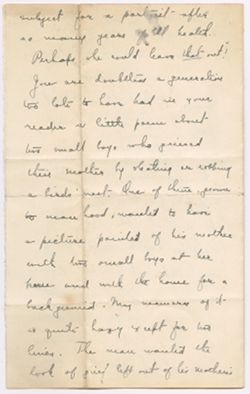 subject for a portrait after
so many years of ill health.
Perhaps she could leave that out!
You are doubtless a generation
too late to have had in your
reader a little poem about
two small boys who grieved
their mother by stoning or robbing
a birds' nest. One of them, grown
to man hood, wanted to have
a picture painted of his mother
with two small boys at her
knee and with the house for a
background. My memory of it
is quite hazy except for two
lines. The man wanted the
look of grief left out of his mother's